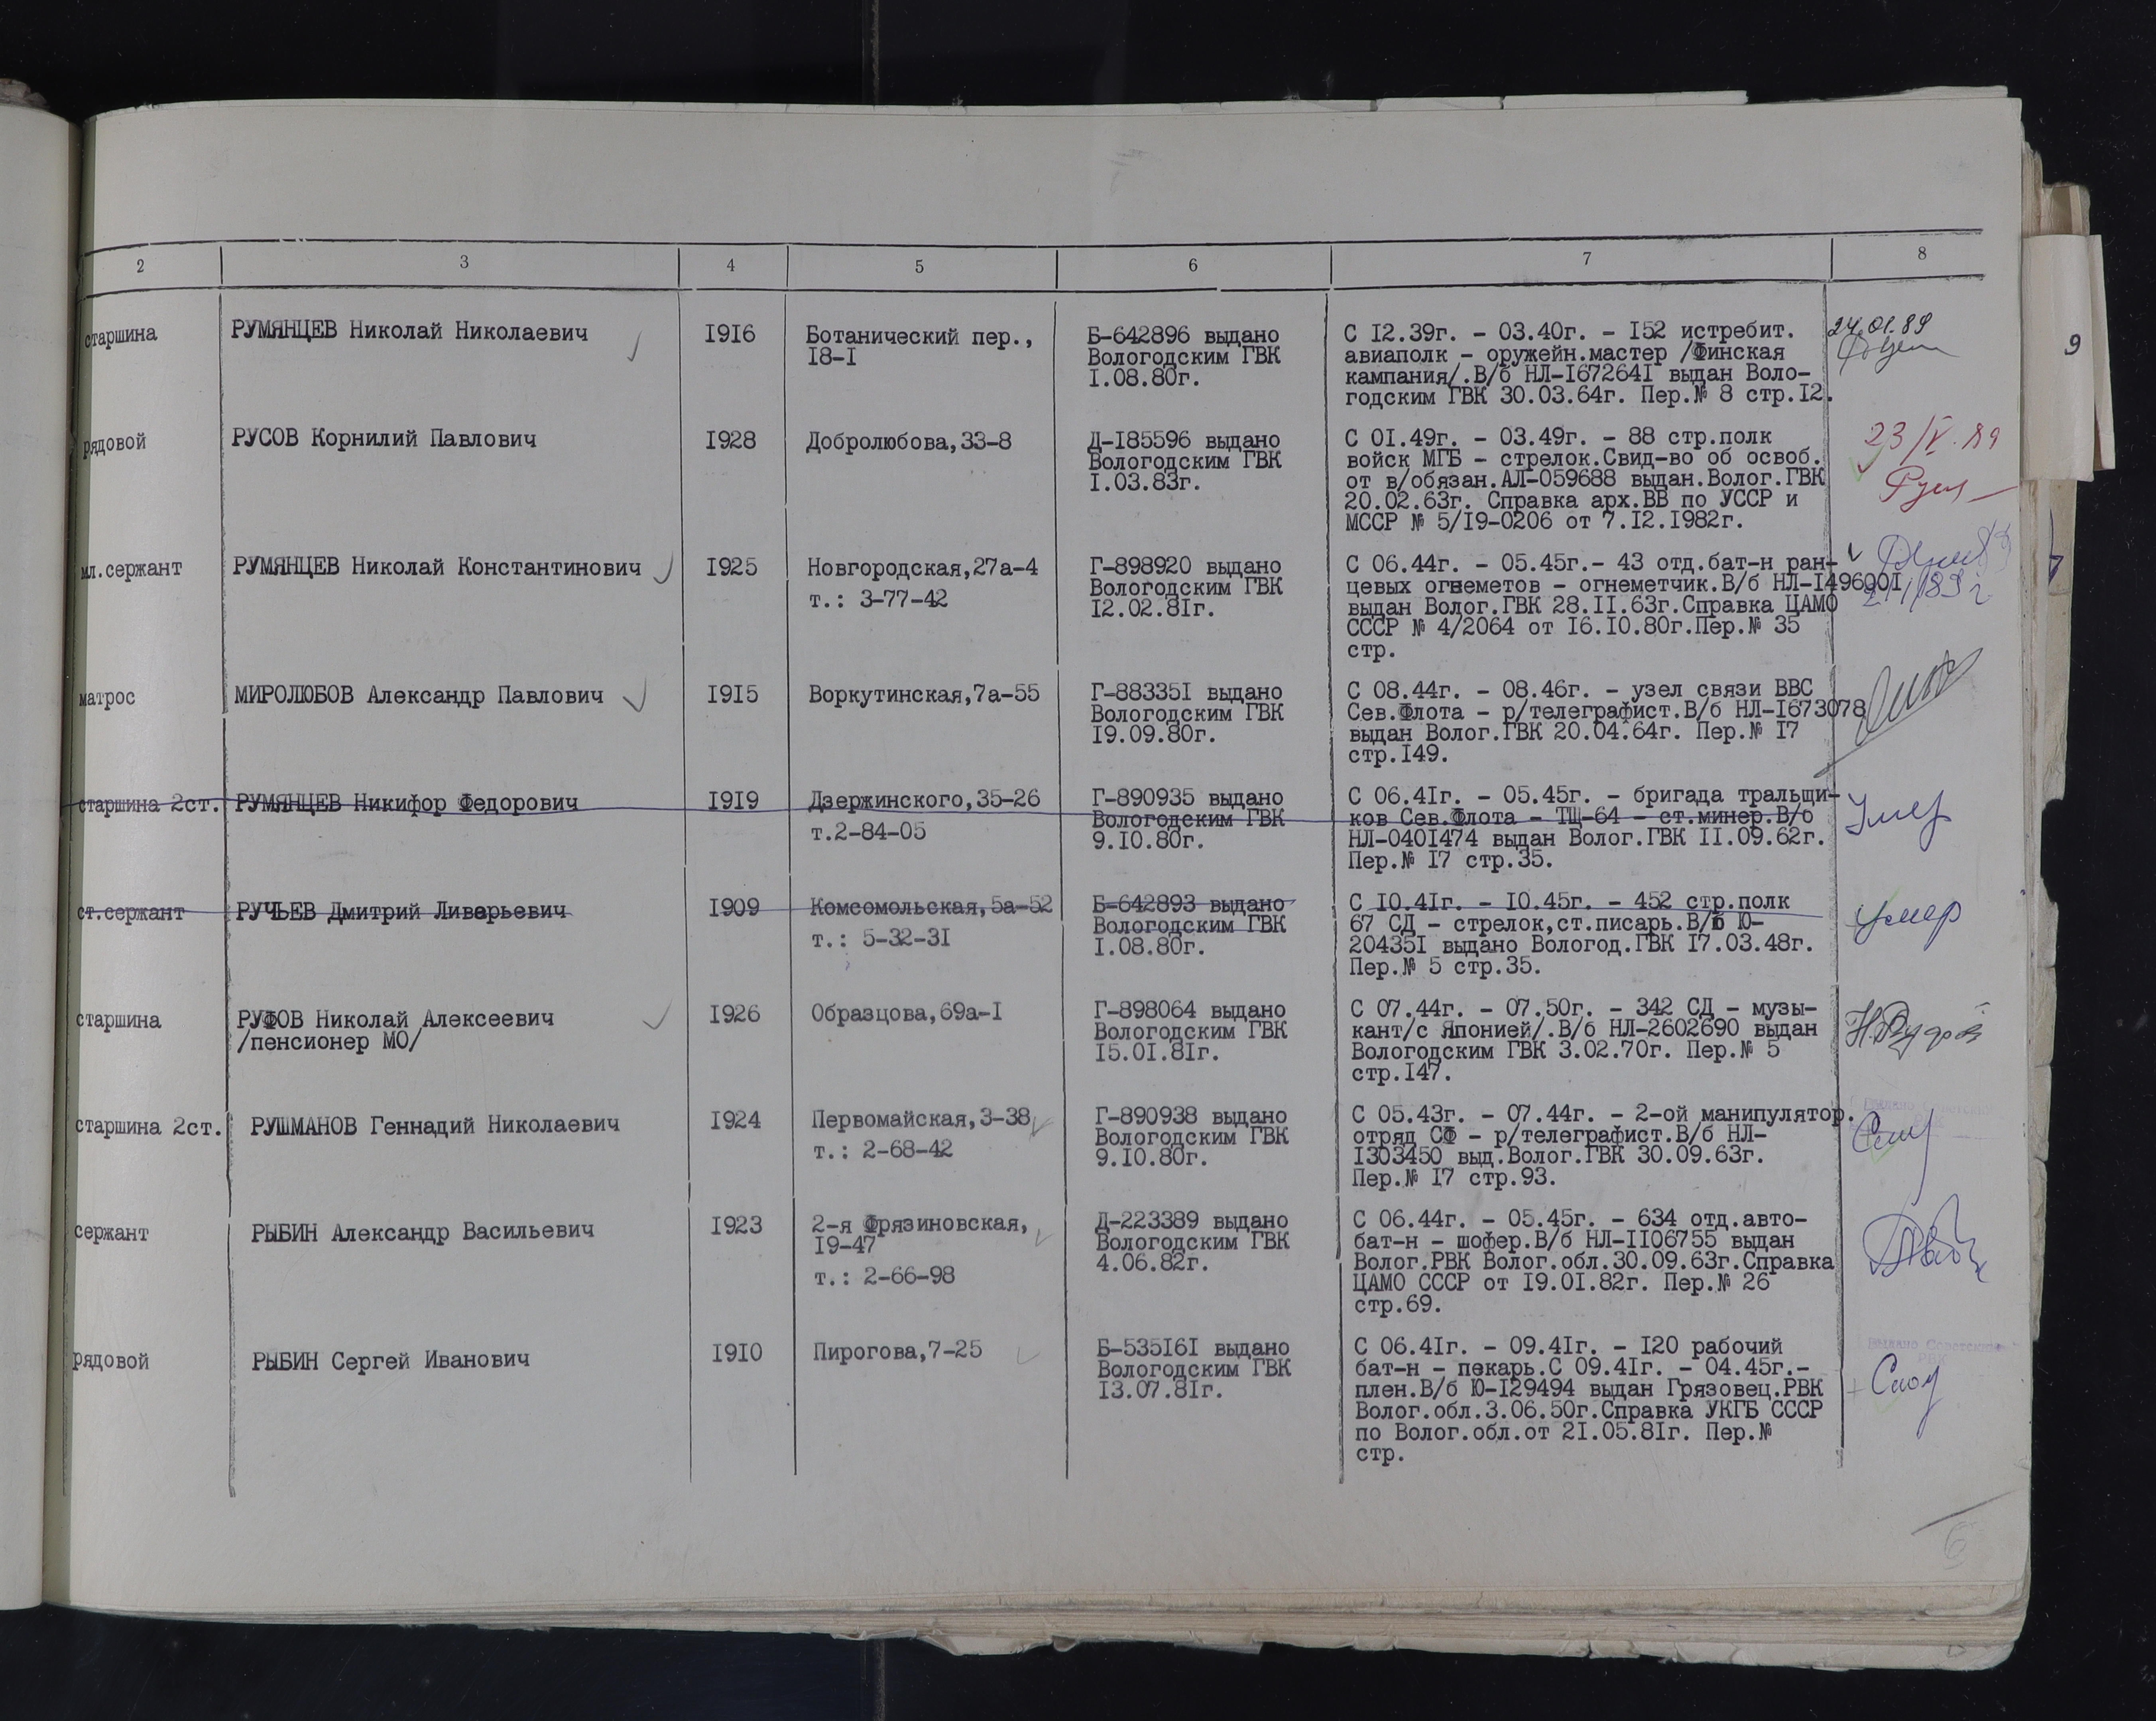 2 3 4 5 6 7 8
9
старшина
РУМЯНЦЕВ Николай Николаевич
1916
Ботанический пер.,
18-1
Б-642896 выдано
Вологодским ГВК
1.08.80г.
С 12.39г. - 03.40г. - 152 истребит.
авиаполк - оружейн.мастер /Финская
кампания/.В/б НЛ-1672641 выдан Воло-
годским ГВК 30.03.64г. Пер.№ 8 стр.12.
24.01.89
рядовой
РУСОВ Корнилий Павлович
1928
Добролюбова,33-8
Д-185596 выдано
Вологодским ГВК
1.03.83г.
С 01.49г. - 03.49г. - 88 стр.полк
войск МГБ - стрелок.Свид-во об освоб.
от в/обязан.АЛ-059688 выдан.Волог.ГВК
20.02.63г. Справка арх.ВВ по УССР и
МССР № 5/19-0206 от 7.12.1982г.
23/V.89
мл.сержант
РУМЯНЦЕВ Николай Константинович
1925
Новгородская,27а-4
т.: 3-77-42
Г-898920 выдано
Вологодским ГВК
12.02.81г.
С 06.44г. - 05.45г.- 43 отд.бат-н ран-
цевых огнеметов - огнеметчик.В/б НЛ-1496001
выдан Волог.ГВК 28.11.63г.Справка ЦАМО
СССР № 4/2064 от 16.10.80г.Пер.№ 35
стр.
матрос
МИРОЛЮБОВ Александр Павлович
1915
Воркутинская,7а-55
Г-883351 выдано
Вологодским ГВК
19.09.80г.
С 08.44г. - 08.46г. - узел связи ВВС
Сев.Флота - р/телеграфист.В/б НЛ-1673078
выдан Волог.ГВК 20.04.64г. Пер.№ 17
стр.149.
старшина 2ст.
РУМЯНЦЕВ Никифор Федорович
1919
Дзержинского,35-26
т.2-84-05
Г-890935 выдано
Вологодским ГВК
9.10.80г.
С 06.41г. - 05.45г. - бригада тральщи-
ков Сев.Флота - ТЩ-64 - ст.минер.В/б
НЛ-0401474 выдан Волог.ГВК 11.09.62г.
Пер.№ 17 стр.35.
Умер
ст.сержант
РУЧЬЕВ Дмитрий Ливарьевич
1909
Комсомольская,5а-52
т.: 5-32-31
Б-642893 выдано
Вологодским ГВК
1.08.80г.
С 10.41г. - 10.45г. - 452 стр.полк
67 СД - стрелок,ст.писарь.В/б Ю-
204351 выдано Вологод.ГВК 17.03.48г.
Пер.№ 5 стр.35.
умер
старшина
РУФОВ Николай Алексеевич
/пенсионер МО/
1926
Образцова,69а-1
Г-898064 выдано
Вологодским ГВК
15.01.81г.
С 07.44г. - 07.50г. - 342 СД - музы-
кант/с Японией/.В/б НЛ-2602690 выдан
Вологодским ГВК 3.02.70г. Пер.№ 5
стр.147.
старшина 2ст.
РУШМАНОВ Геннадий Николаевич
1924
Первомайская,3-38
т.: 2-68-42
Г-890938 выдано
Вологодским ГВК
9.10.80г.
С 05.43г. - 07.44г. - 2-ой манипулятор.
отряд СФ - р/телеграфист.В/б НЛ-
1303450 выд.Волог.ГВК 30.09.63г.
Пер.№ 17 стр.93.
сержант
РЫБИН Александр Васильевич
1923
2-я Фрязиновская,
19-47
т.: 2-66-98
Д-223389 выдано
Вологодским ГВК
4.06.82г.
С 06.44г. - 05.45г. - 634 отд.авто-
бат-н - шофер.В/б НЛ-1106755 выдан
Волог.РВК Волог.обл.30.09.63г.Справка
ЦАМО СССР от 19.01.82г. Пер.№ 26
стр.69.
рядовой
РЫБИН Сергей Иванович
1910
Пирогова,7-25
Б-535161 выдано
Вологодским ГВК
13.07.81г.
С 06.41г. - 09.41г. - 120 рабочий
бат-н - пекарь.С 09.41г. - 04.45г.-
плен.В/б Ю-129494 выдан Грязовец.РВК
Волог.обл.3.06.50г.Справка УКГБ СССР
по Волог.обл.от 21.05.81г. Пер.№
стр.
Выдано Советским
РВК
6